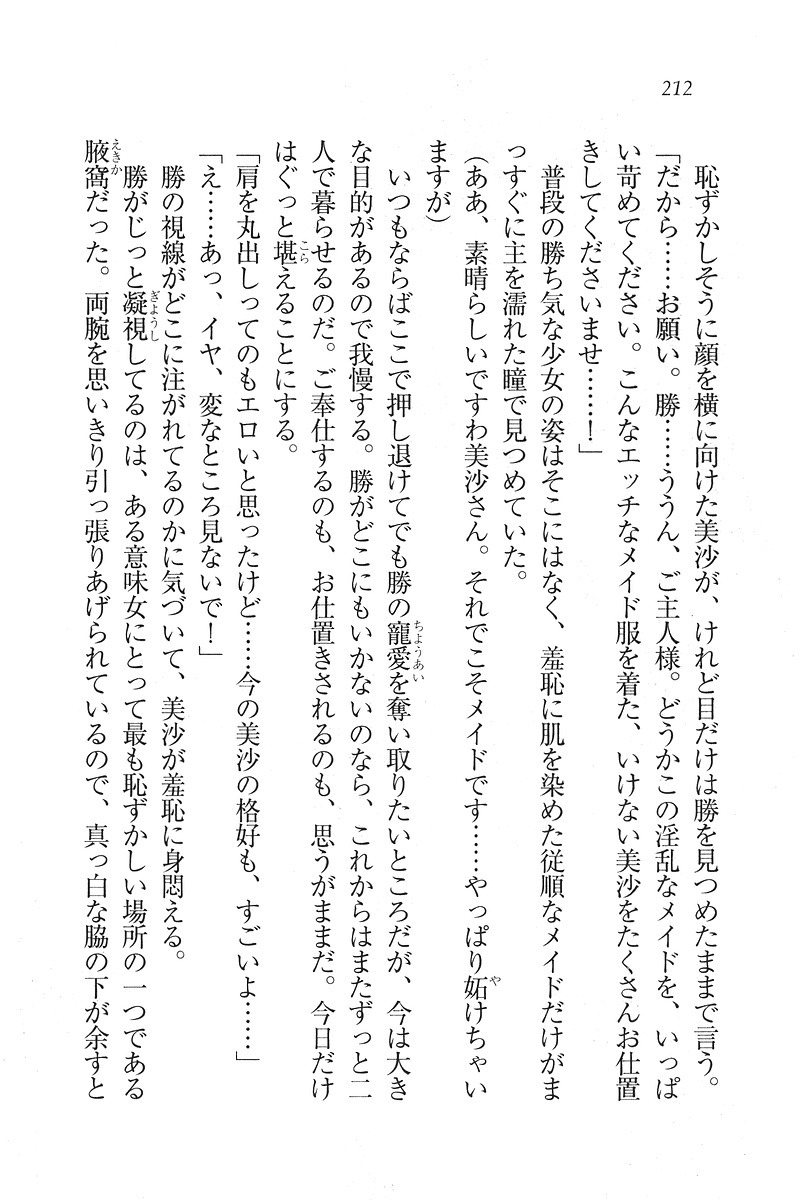 212
恥ずかしそうに顔を横に向けた美沙が、けれど目だけは勝を見つめたままで言う。
「だから……お願い。勝……ううん、ご主人様。どうかこの淫乱なメイドを、いっぱ
い苛めてください。こんなエッチなメイド服を着た、いけない美沙をたくさんお仕置
きしてくださいませ……！」
普段の勝ち気な少女の姿はそこにはなく、羞恥に肌を染めた従順なメイドだけがま
っすぐに主を濡れた瞳で見つめていた。
（ああ、素晴らしいですわ美沙さん。それでこそメイドです……やっぱり妬けちゃい
ますが）
いつもならばここで押し退けてでも勝の寵愛を奪い取りたいところだが、今は大き
な目的があるので我慢する。勝がどこにもいかないのなら、これからはまたずっと二
人で暮らせるのだ。ご奉仕するのも、お仕置きされるのも、思うがままだ。今日だけ
はぐっと堪えることにする。
「肩を丸出しってのもエロいと思ったけど……今の美沙の格好も、すごいよ……」
「え……あっ、イヤ、変なところ見ないで！」
勝の視線がどこに注がれてるのかに気づいて、美沙が羞恥に身悶える。
勝がじっと凝視してるのは、ある意味女にとって最も恥ずかしい場所の一つである
腋窩だった。両腕を思いきり引っ張りあげられているので、真っ白な脇の下が余すと